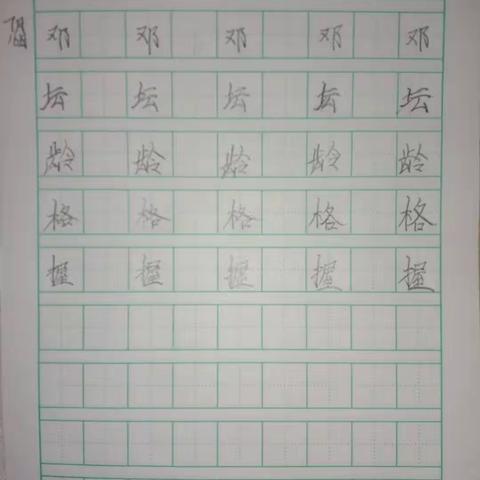 邓 邓 邓 邓 邓
坛 坛 坛 坛 坛
龄 龄 龄 龄 龄
格 格 格 格 格
握 握 握 握 握